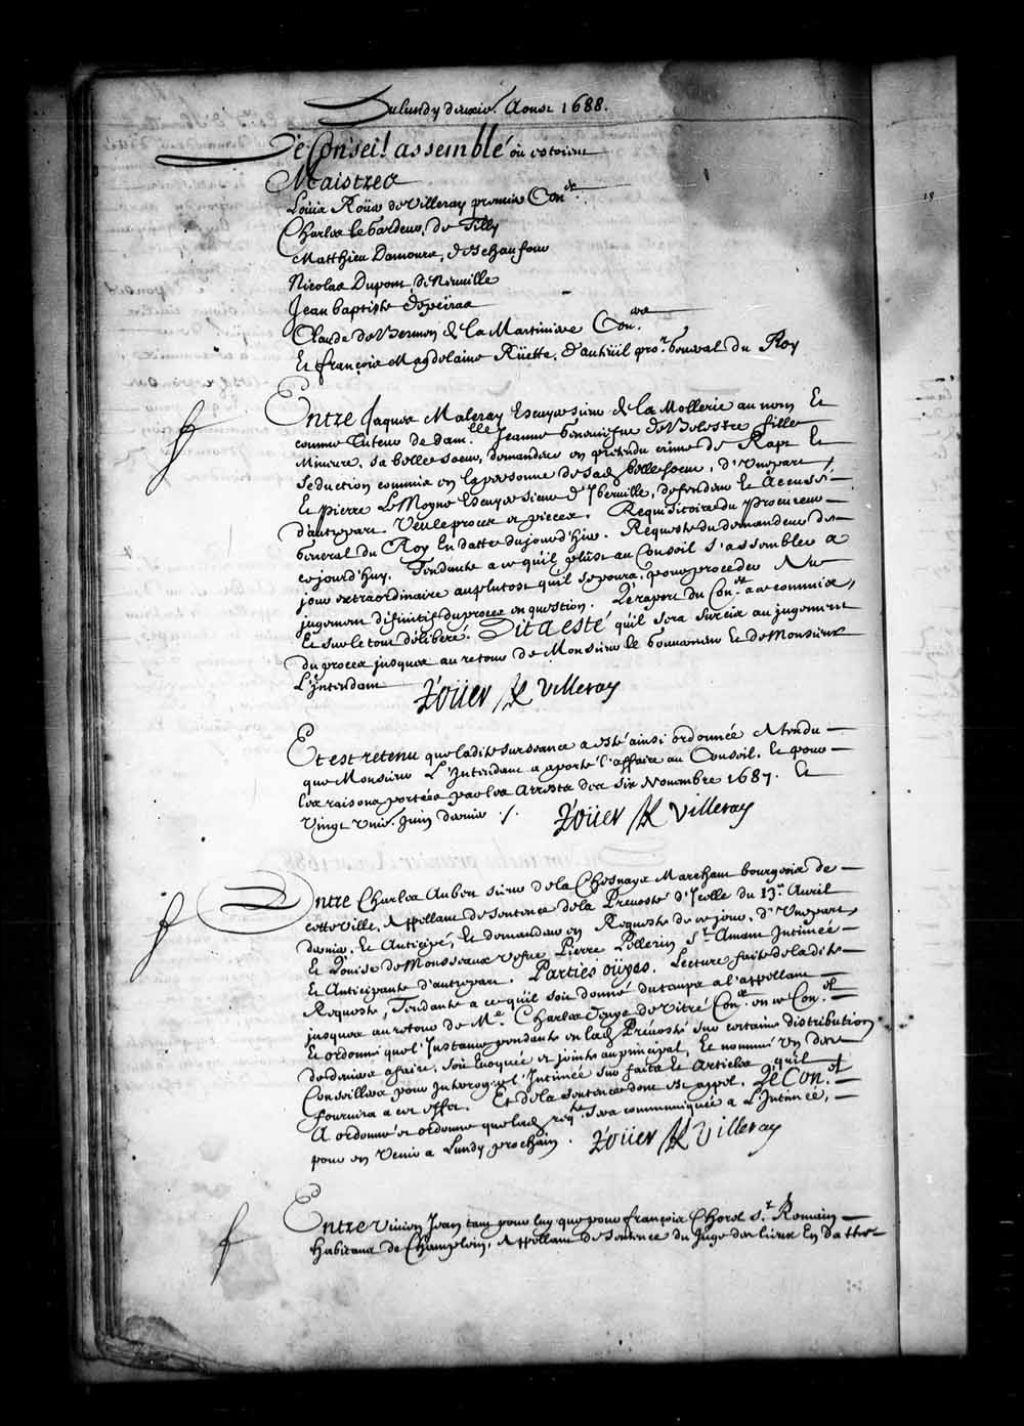 Du lundy deuxie. Aoust 1688.
Le Conseil assemblé où estoient
Maistres
Loüis Roüer de Villeray premier Con.er
Charles le Gardeur, de Tilly
Matthieu Damours, Deschaufour
Nicolas Dupont, de Neuuille
Jean baptiste depeiras
Claude de Bermen de la Martiniere Con.ers
Et françois Magdelaine Rüette, d'auteüil pro.r general du Roy
Entre Jaques Maleray Escuyer sieur de la Mollerie au nom Et
comme tuteur de dam.lle Jeanne Geneuiefue de Belestre fille
Mineure, sa belle soeur, demandeur en pretendu crime de Rapt Et
Seduction commis en la personne de lad. belle soeur, d'Vne part,
Et pierre Le Moyne Escuyer sieur d'Jberuille, defendeur Et Accusé
d'autre part. Veu le procez et pieces. Requisitoire du procureur
General du Roy En datte du jourd'hier. Requeste du demandeur de
ce jourd'huy, Tendante a ce qu'il plust au Conseil s'assembler a
jour extraordinaire au plutost qu'il se poura, pour proceder Au
jugement définitif du procez en question. Le raport du Con.er a ce commis,
Et sur le tout déliberé. Dit a esté qu'il sera surcis au jugement
du procez jusques au retour de Monsieur le Gouuerneur Et de Monsieur
L'Jntendant
Roüer de Villeray
Et est retenu que ladite surseance a esté ainsi ordonnée Attendu
que Monsieur L'Jntendant a aporté l'affaire au Conseil, Et pour
les raisons portées par les Arrests des six Nouembre 1687. Et
Vingt Vnie. Juin dernier ./.
Roüer de Villeray
Entre Charles Aubert sieur de la Chesnaye Marchant bourgeois de
cette ville, Appellant de Sentence de la Preuosté d'Jcelle du 13.e Auril
dernier, Et Anticipé, Et demandeur en Requeste de ce jour, d'Vne part,
Et Loüise de Mousseaux vefue Pierre Pellerin S.t Amant Jntimée
Et Anticipante d'autre part. Parties oüyes. Lecture faite de ladite
Requeste, Tendante a ce qu'il soit donné du temps a l'appellant
jusques au retour de M.e Charles Denys de Vitré Con.er en ce Con.el
Et ordonné que l'Jnstance pendante en lad. Préuosté sur certaine distribution
de deniers a faire, soit Euoquée et jointe au principal, Et nommé vn des
Conseillers pour Jnteroger l'Jntimée sur faits Et Articles qu'il
fournira a cet effet. Et de la sentence dont est appel. Le Con.el
A ordonné et ordonne que lad. reqte sera communiquée a L'Jntimée,
pour en Venir a Lundy prochain.
Roüer de Villeray
Entre Viuien Jean tant pour luy que pour françois Chorel S.t Romain
Habitans de Champlein, Appellant de Sentence du Juge des lieux En datte